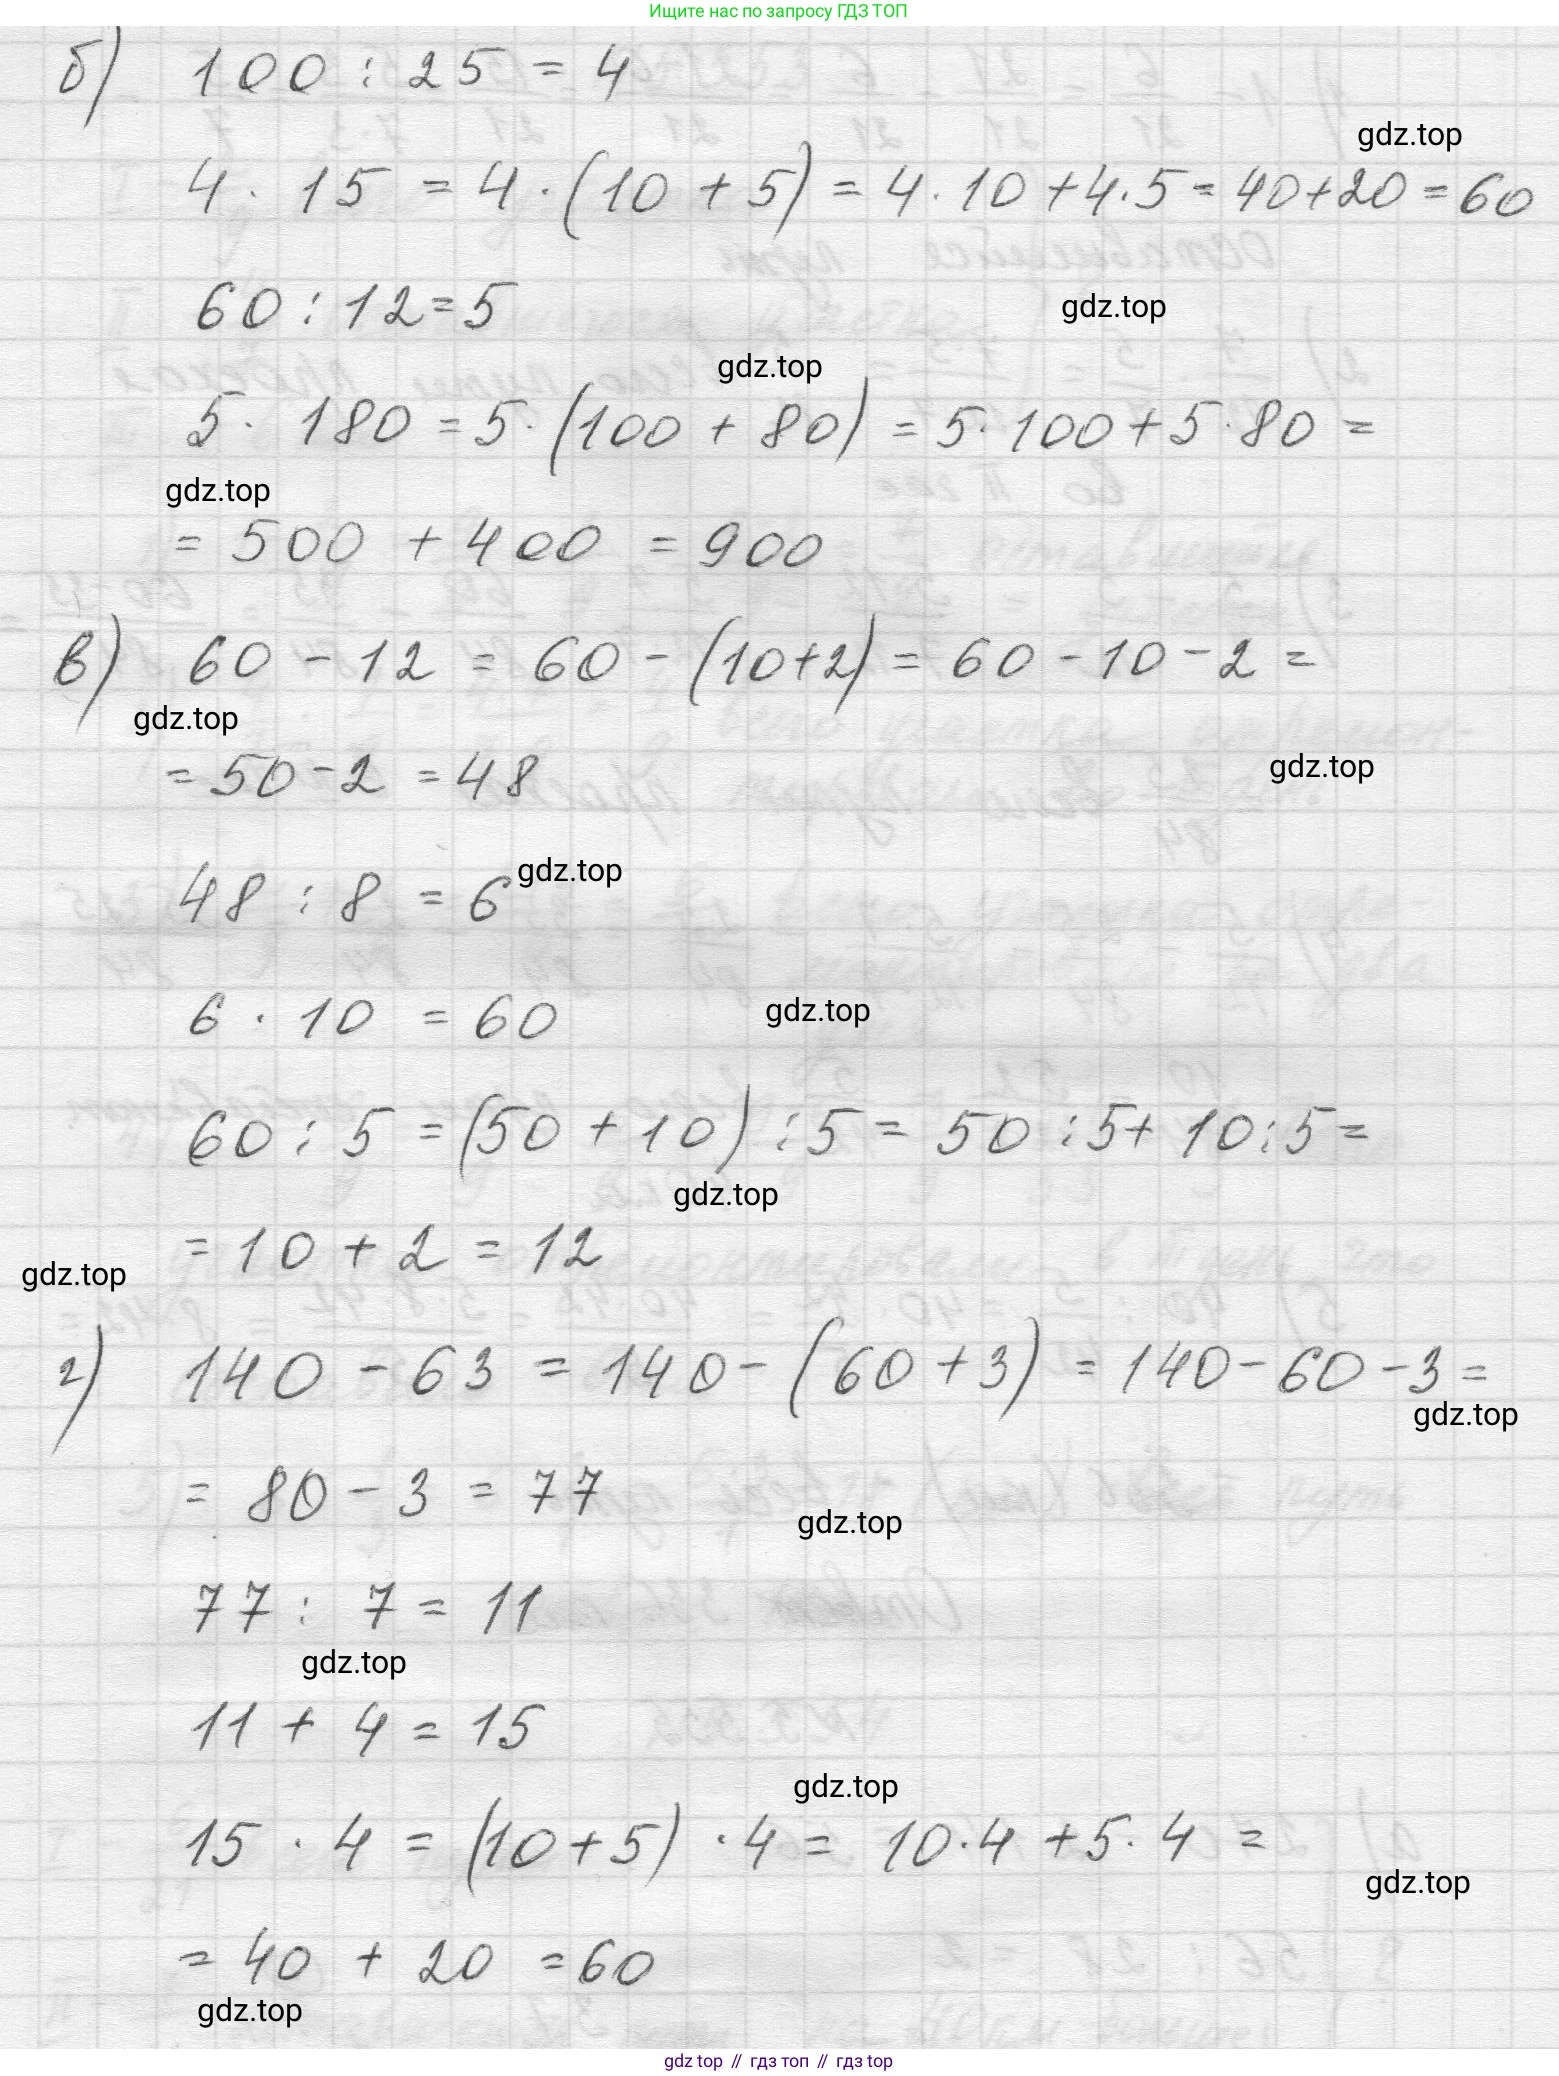 Ищите нас по запросу ГДЗ ТОП
б) 100 : 25 = 4
gdz.top
4 · 15 = 4 · (10 + 5) = 4 · 10 + 4 · 5 = 40 + 20 = 60
60 : 12 = 5
gdz.top
gdz.top
5 · 180 = 5 · (100 + 80) = 5 · 100 + 5 · 80 =
gdz.top
= 500 + 400 = 900
в) 60 - 12 = 60 - (10+2) = 60 - 10 - 2 =
gdz.top
= 50 - 2 = 48
gdz.top
48 : 8 = 6
gdz.top
6 · 10 = 60
gdz.top
60 : 5 = (50 + 10) : 5 = 50 : 5 + 10 : 5 =
gdz.top
= 10 + 2 = 12
gdz.top
г) 140 - 63 = 140 - (60 + 3) = 140 - 60 - 3 =
gdz.top
= 80 - 3 = 77
gdz.top
77 : 7 = 11
gdz.top
11 + 4 = 15
gdz.top
15 · 4 = (10 + 5) · 4 = 10 · 4 + 5 · 4 =
gdz.top
= 40 + 20 = 60
gdz.top
gdz top // гдз топ // гдз top